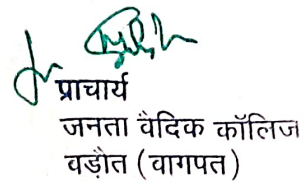 प्राचार्य
जनता वैदिक कॉलिज
वड़ौत (वागपत)